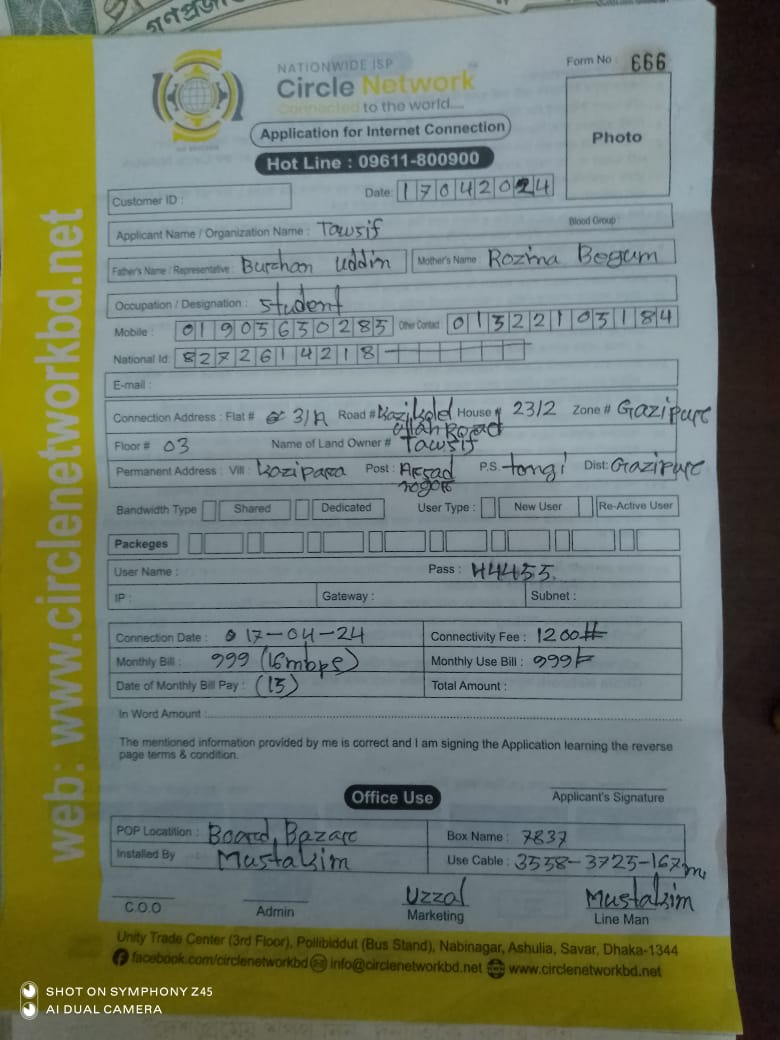 গণপ্রজা
NATIONWIDE ISP
Circle Network
Connected to the world....
Form No : 666
Application for Internet Connection
Photo
Hot Line : 09611-800900
Customer ID :
Date: 17042024
Applicant Name / Organization Name : Tawsif
Blood Group :
Father's Name / Representative : Burhan Uddin
Mother's Name Rozina Begum
Occupation / Designation : Student
Mobile : 01905630285 Other Contact 01322103184
National Id: 8272614218
E-mail :
Connection Address : Flat # 3/A Road # House # 23/2 Zone # Gazipur
Floor # 03 Name of Land Owner # Tawsif
Permanent Address : Vill : Post : P.S. tongi Dist: Gazipur
Bandwidth Type Shared Dedicated User Type : New User Re-Active User
Packeges
User Name : Pass : 44455
IP : Gateway : Subnet :
Connection Date : 17-04-24 Connectivity Fee : 1200
Monthly Bill : 999 (16mbps) Monthly Use Bill : 999
Date of Monthly Bill Pay : (15) Total Amount :
In Word Amount :
The mentioned information provided by me is correct and I am signing the Application learning the reverse
page terms & condition.
Office Use
Applicant's Signature
POP Locatition : Board Bazar Box Name : 7837
Installed By : Mustakim Use Cable : 3558-3725-167m
Uzzal Mustakim
C.O.O Admin Marketing Line Man
Unity Trade Center (3rd Floor), Pollibiddut (Bus Stand), Nabinagar, Ashulia, Savar, Dhaka-1344
facebook.com/circlenetworkbd info@circlenetworkbd.net www.circlenetworkbd.net
web: www.circlenetworkbd.net
SHOT ON SYMPHONY Z45
AI DUAL CAMERA